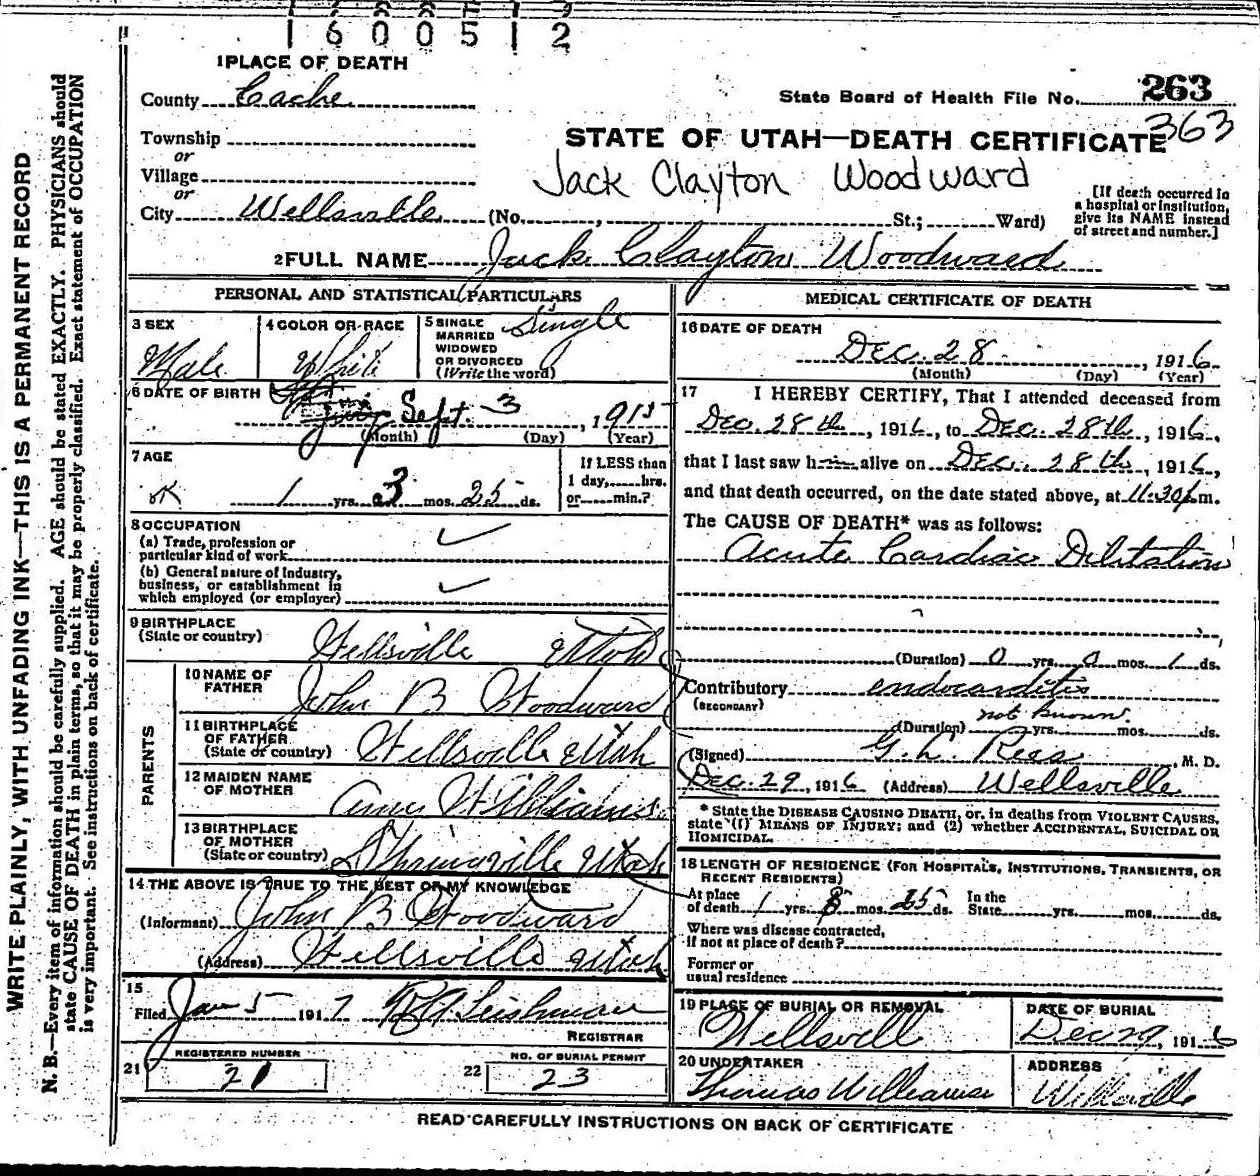 1600512
1 PLACE OF DEATH
County Cache
State Board of Health File No. 263
363
Township
or
Village
or
City Wellsville (No. , St.; Ward)
STATE OF UTAH—DEATH CERTIFICATE
Jack Clayton Woodward
[If death occurred in
a hospital or institution,
give its NAME instead
of street and number.]
2 FULL NAME Jack Clayton Woodward
PERSONAL AND STATISTICAL PARTICULARS
3 SEX
Male
4 COLOR OR RACE
White
5 SINGLE
MARRIED
WIDOWED
OR DIVORCED
(Write the word)
Single
6 DATE OF BIRTH
Sept. 3, 1915
(Month) (Day) (Year)
7 AGE
OK 1 yrs. 3 mos. 25 ds.
If LESS than
1 day, hrs.
or min.?
8 OCCUPATION
(a) Trade, profession or
particular kind of work
(b) General nature of Industry,
business, or establishment in
which employed (or employer)
9 BIRTHPLACE
(State or country)
Wellsville Utah
PARENTS
10 NAME OF
FATHER
John B Woodward
11 BIRTHPLACE
OF FATHER
(State or country)
Wellsville Utah
12 MAIDEN NAME
OF MOTHER
Williams
13 BIRTHPLACE
OF MOTHER
(State or country)
Utah
14 THE ABOVE IS TRUE TO THE BEST OF MY KNOWLEDGE
(Informant) John B Woodward
(Address) Wellsville Utah
15
Filed Jan 5 1917 Leishman
REGISTRAR
21 REGISTERED NUMBER
21
22 NO. OF BURIAL PERMIT
23
MEDICAL CERTIFICATE OF DEATH
16 DATE OF DEATH
Dec. 28, 1916
(Month) (Day) (Year)
17 I HEREBY CERTIFY, That I attended deceased from
Dec. 28th, 1916, to Dec. 28th, 1916,
that I last saw h alive on Dec. 28th, 1916,
and that death occurred, on the date stated above, at 11:30 p m.
The CAUSE OF DEATH* was as follows:
Acute Cardiac Dilitation
(Duration) 0 yrs. 0 mos. 1 ds.
Contributory endocarditis
(SECONDARY)
not known.
(Duration) yrs. mos. ds.
(Signed) G. L. Rees, M. D.
Dec. 29, 1916 (Address) Wellsville
* State the DISEASE CAUSING DEATH, or, in deaths from VIOLENT CAUSES,
state (1) MEANS OF INJURY; and (2) whether ACCIDENTAL, SUICIDAL OR
HOMICIDAL.
18 LENGTH OF RESIDENCE (FOR HOSPITALS, INSTITUTIONS, TRANSIENTS, OR
RECENT RESIDENTS)
At place
of death 1 yrs. 3 mos. 25 ds.
In the
State yrs. mos. ds.
Where was disease contracted,
if not at place of death?
Former or
usual residence
19 PLACE OF BURIAL OR REMOVAL
Wellsvill
DATE OF BURIAL
Dec 29, 1916
20 UNDERTAKER
Thomas Williams
ADDRESS
Wellsville
READ CAREFULLY INSTRUCTIONS ON BACK OF CERTIFICATE
WRITE PLAINLY, WITH UNFADING INK—THIS IS A PERMANENT RECORD
N. B.—Every item of information should be carefully supplied. AGE should be stated EXACTLY. PHYSICIANS should
state CAUSE OF DEATH in plain terms, so that it may be properly classified. Exact statement of OCCUPATION
is very important. See instructions on back of certificate.